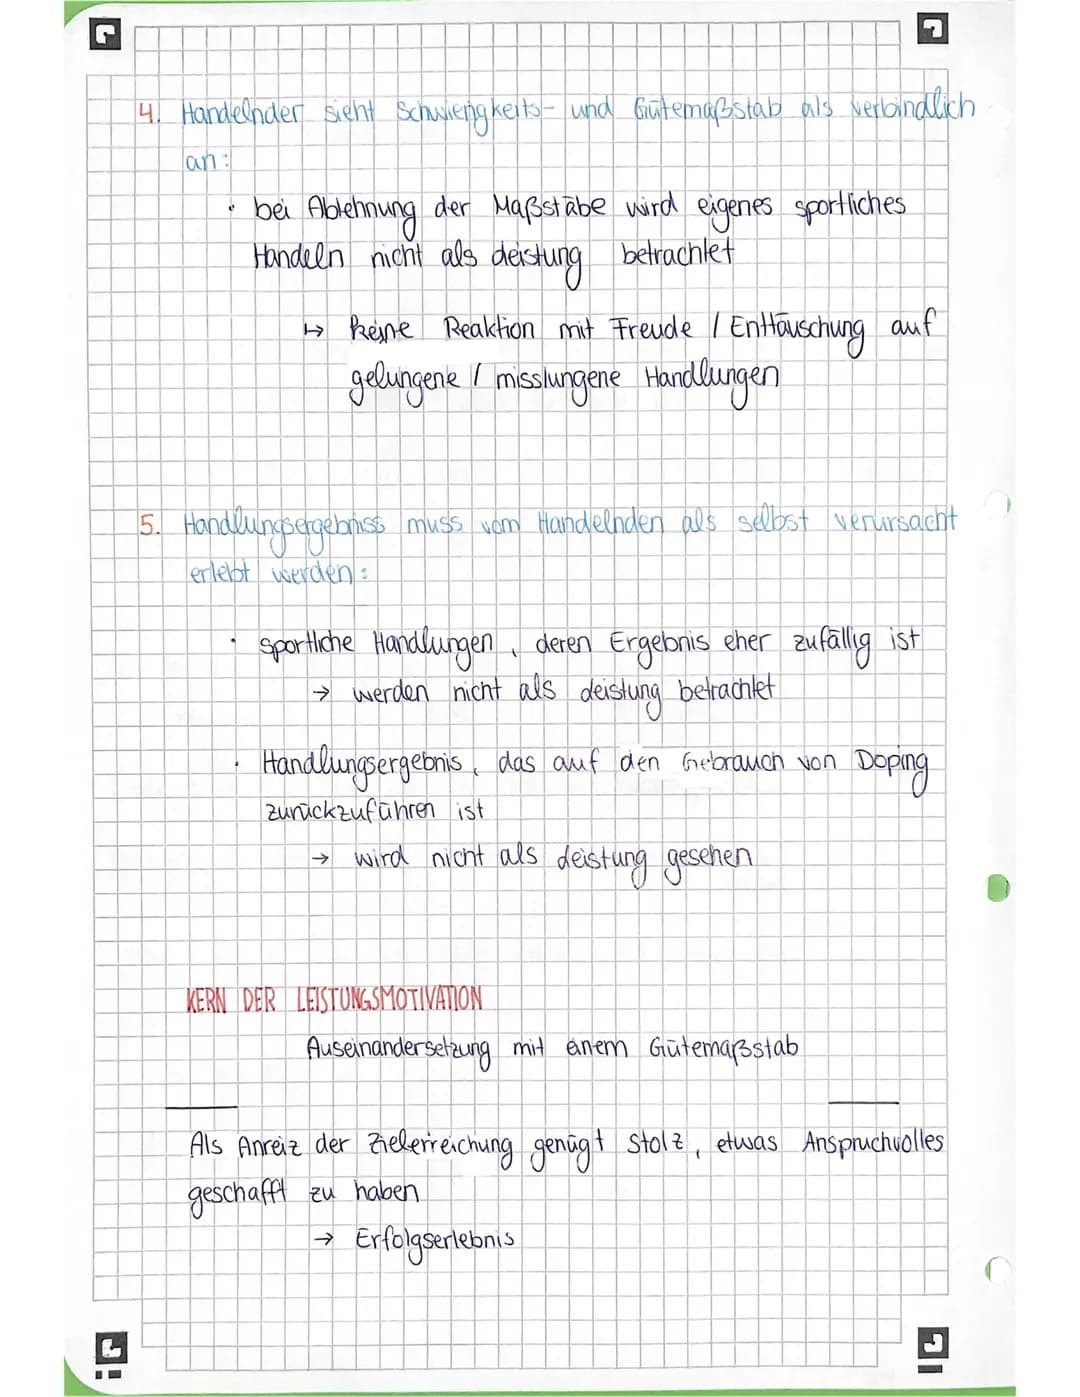 4. Handelnder sieht Schwierigkeits- und Gütemaßstab als verbindlich
an:
• bei Ablehnung der Maßstäbe wird eigenes sportliches
Handeln nicht als Leistung betrachtet
↳ keine Reaktion mit Freude / Enttäuschung auf
gelungene / misslungene Handlungen
5. Handlungsergebniss muss vom Handelnden als selbst verursacht
erlebt werden:
• sportliche Handlungen, deren Ergebnis eher zufällig ist
→ werden nicht als Leistung betrachtet
• Handlungsergebnis, das auf den Gebrauch von Doping
zurückzuführen ist
→ wird nicht als Leistung gesehen
KERN DER LEISTUNGSMOTIVATION
Auseinandersetzung mit einem Gütemaßstab
Als Anreiz der Zielerreichung genügt Stolz, etwas Anspruchvolles
geschafft zu haben
→ Erfolgserlebnis